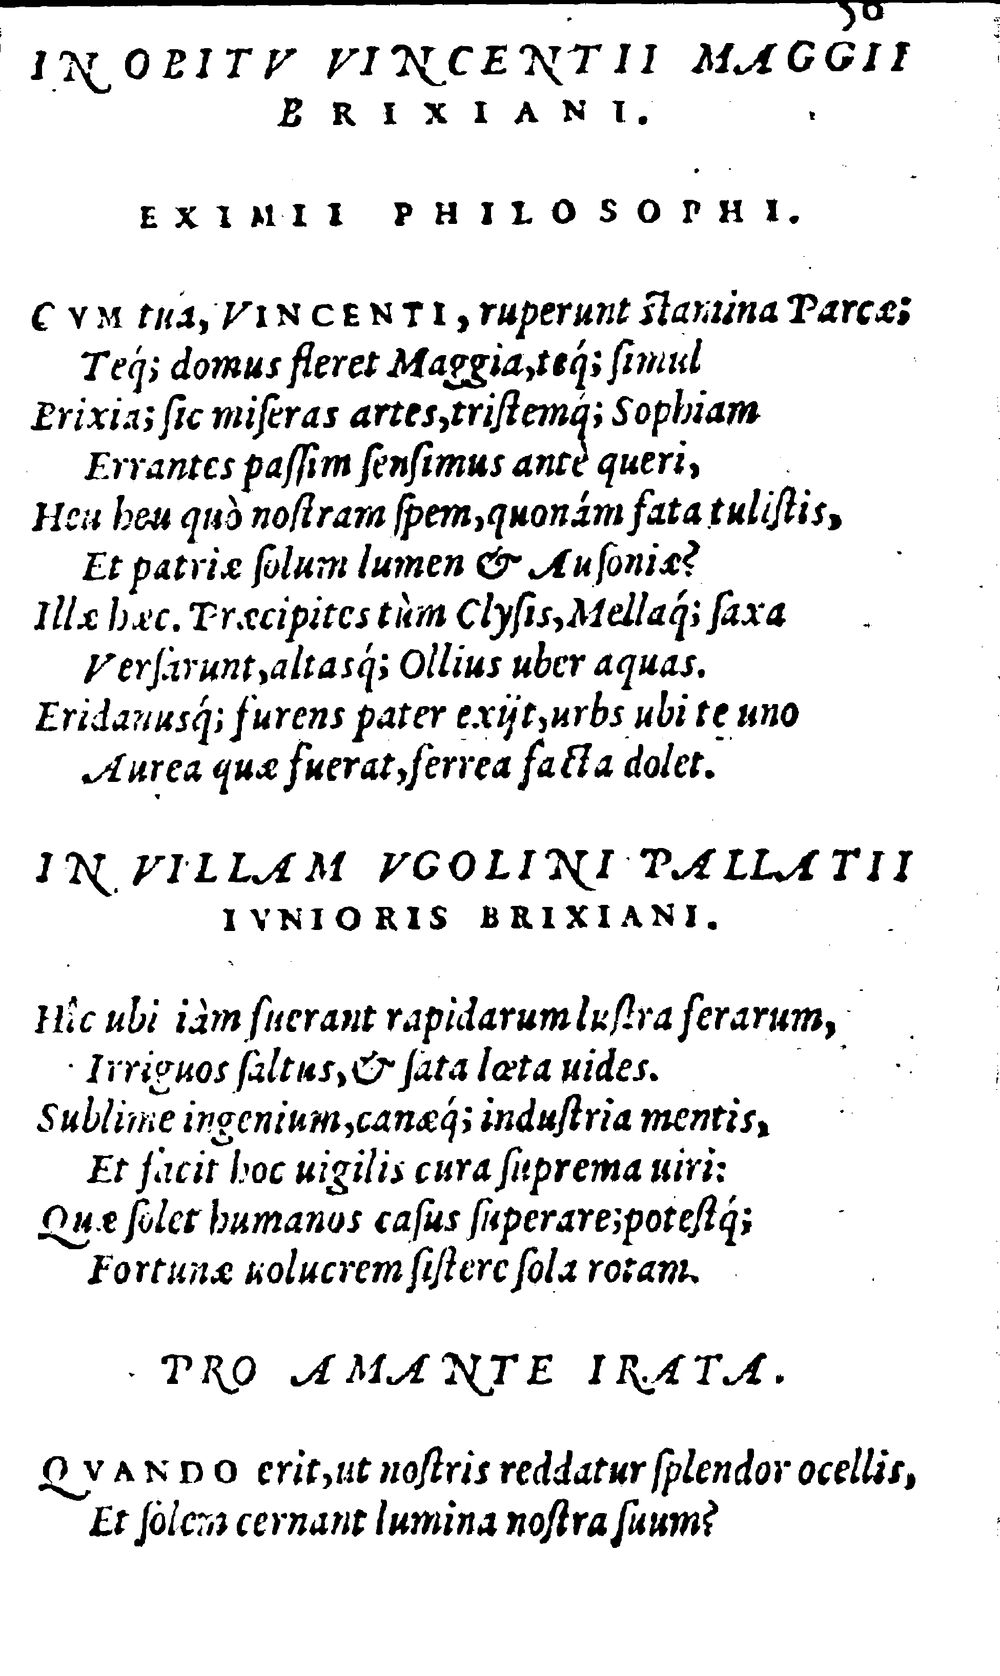 50
IN OBITV VINCENTII MAGGII
BRIXIANI.
EXIMII PHILOSOPHI.
CVM tua, VINCENTI, ruperunt ſtamina Parcæ;
Teq́; domus fleret Maggia, teq́; ſimul
Brixia; ſic miſeras artes, triſtemq́; Sophiam
Errantes paſſim ſenſimus antè queri,
Heu heu quò noſtram ſpem, quonám fata tuliſtis,
Et patriæ ſolum lumen & Auſoniæ?
Illæ hæc. Præcipites tùm Clyſis, Mellaq́; ſaxa
Verſarunt, altasq́; Ollius uber aquas.
Eridanusq́; furens pater exijt, urbs ubi te uno
Aurea quæ fuerat, ferrea facta dolet.
IN VILLAM VGOLINI PALLATII
IVNIORIS BRIXIANI.
Hîc ubi iàm fuerant rapidarum luſtra ferarum,
Irriguos ſaltus, & ſata lœta uides.
Sublime ingenium, canæq́; induſtria mentis,
Et facit hoc uigilis cura ſuprema uiri:
Quæ ſolet humanos caſus ſuperare; poteſtq́;
Fortunæ uolucrem ſiſtere ſola rotam.
PRO AMANTE IRATA.
QVANDO erit, ut noſtris reddatur ſplendor ocellis,
Et ſolem cernant lumina noſtra ſuum?